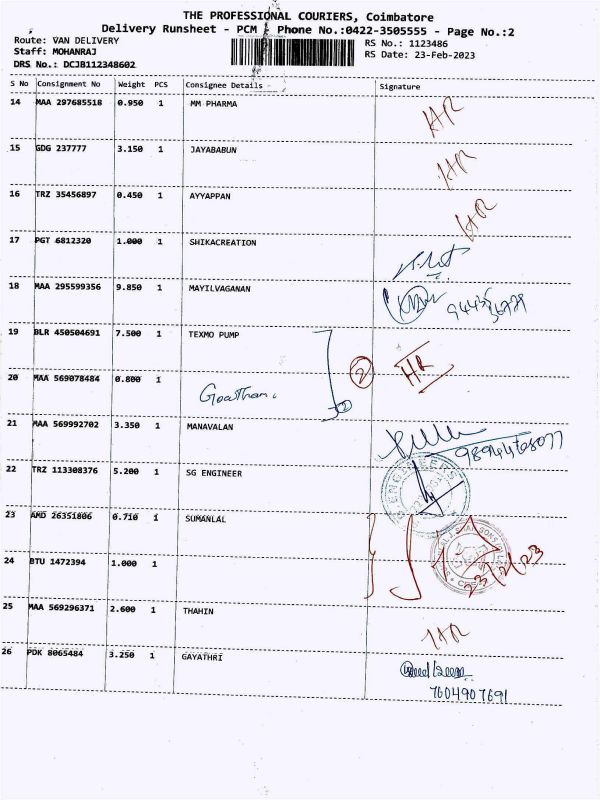 THE PROFESSIONAL COURIERS, Coimbatore
Delivery Runsheet - PCM Phone No.:0422-3505555 - Page No.:2
Route: VAN DELIVERY
RS No.: 1123486
Staff: MOHANRAJ
RS Date: 23-Feb-2023
DRS No.: DCJB112348602
S No Consignment No Weight PCS Consignee Details Signature
14 MAA 297685518 0.950 1 MM PHARMA HR
15 GDG 237777 3.150 1 JAYABABUN HR
16 TRZ 35456897 0.450 1 AYYAPPAN HR
17 PGT 6812320 1.000 1 SHIKACREATION
18 MAA 295599356 9.850 1 MAYILVAGANAN
19 BLR 450504691 7.500 1 TEXMO PUMP 2 HR
20 MAA 569078484 0.800 1
21 MAA 569992702 3.350 1 MANAVALAN
22 TRZ 113308376 5.200 1 SG ENGINEER
ENGINEERS
23 AMD 26351806 0.710 1 SUMANLAL
23/2/23
24 BTU 1472394 1.000 1
25 MAA 569296371 2.600 1 THAHIN HR
26 PDK 8065484 3.250 1 GAYATHRI
7604907691